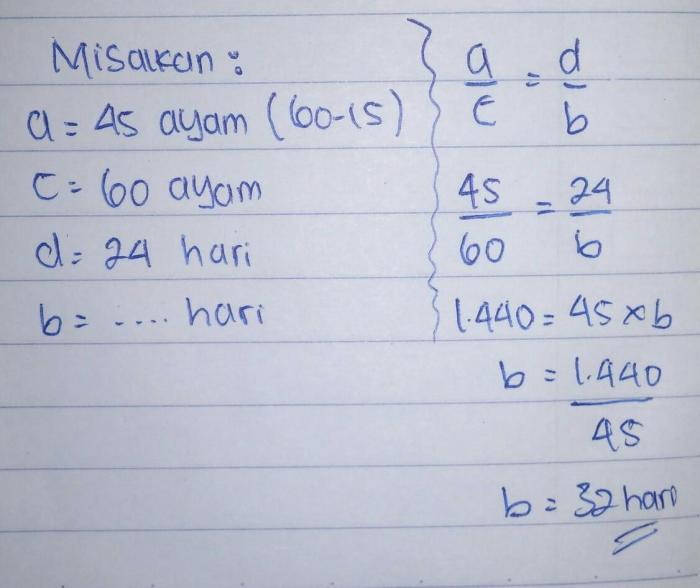 Misalkan :
a = 45 ayam (60-15)
c = 60 ayam
d = 24 hari
b = .... hari
a/c = d/b
45/60 = 24/b
1.440 = 45 × b
b = 1.440/45
b = 32 hari